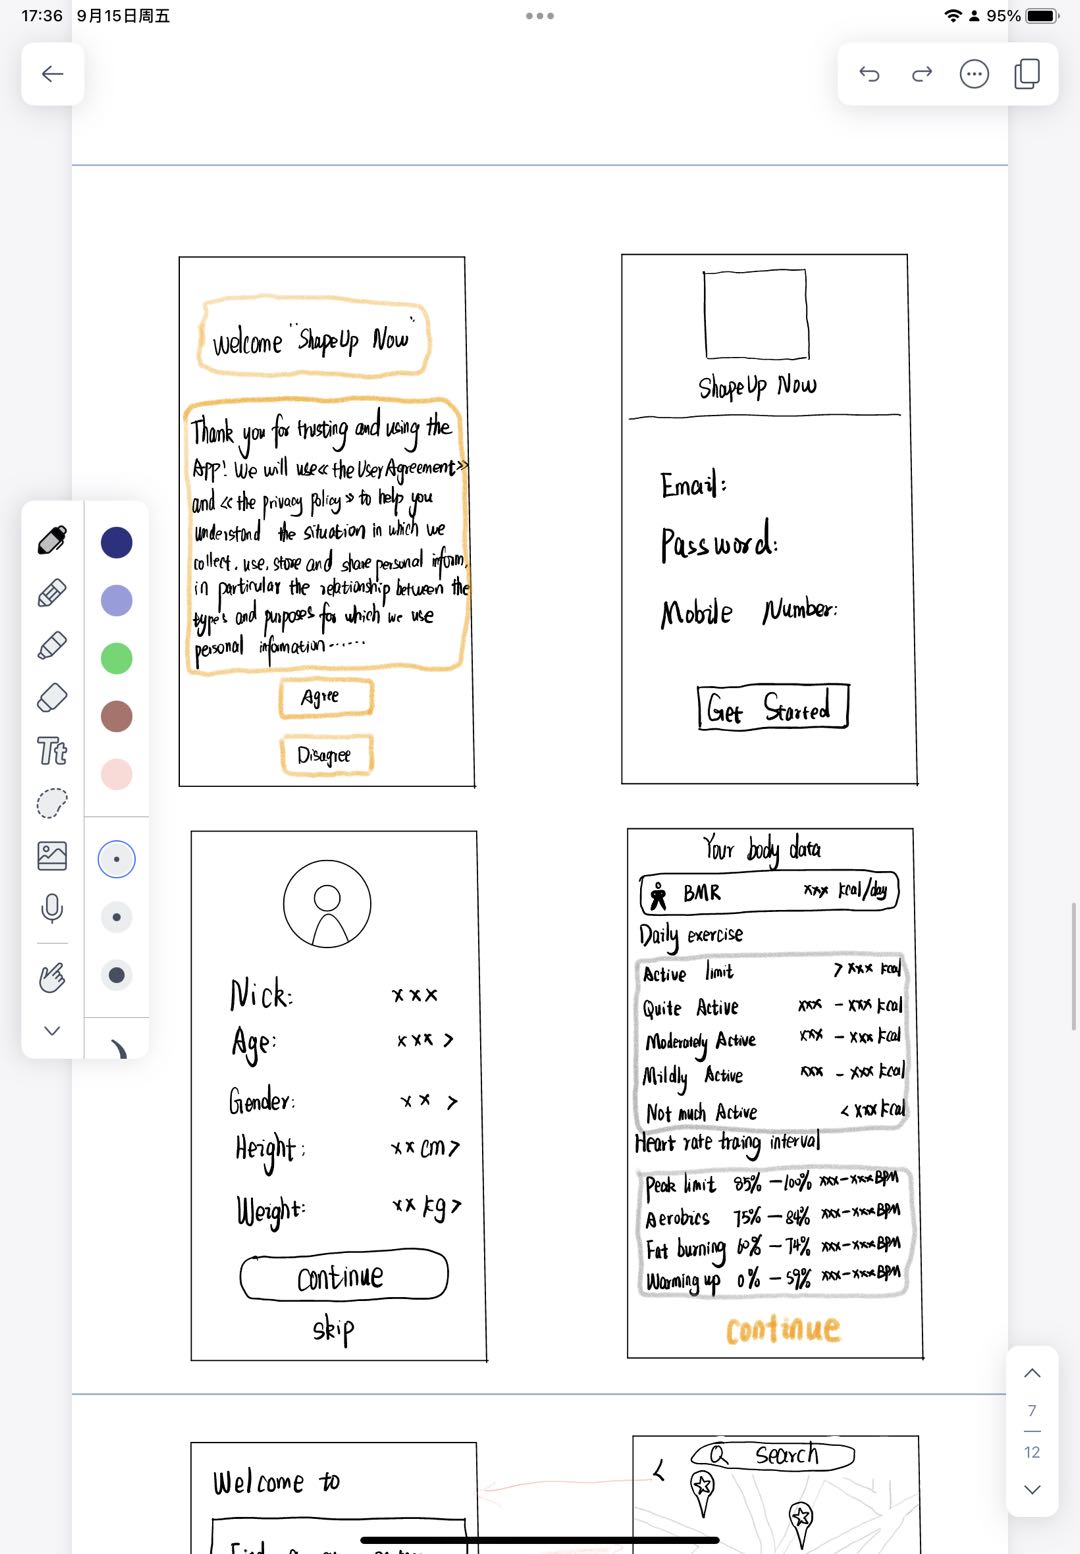 17:36 9月15日周五
95%
Welcome "ShapeUp Now"
Thank you for trusting and using the
App! We will use《the User Agreement》
and《the privacy policy》to help you
understand the situation in which we
collect, use, store and share personal inform,
in particular the relationship between the
types and purposes for which we use
personal information······
Agree
Disagree
ShapeUp Now
Email:
Password:
Mobile Number:
Get Started
Nick: xxx
Age: xxx >
Gender: xx >
Height: xx cm >
Weight: xx kg >
Continue
skip
Your body data
BMR xxx kcal/day
Daily exercise
Active limit > xxx kcal
Quite Active xxx - xxx kcal
Moderately Active xxx - xxx kcal
Mildly Active xxx - xxx kcal
Not much Active < xxx kcal
Heart rate traing interval
Peak limit 85% - 100% xxx-xxx BPM
Aerobics 75% - 84% xxx-xxx BPM
Fat burning 60% - 74% xxx-xxx BPM
Warming up 0% - 59% xxx-xxx BPM
Continue
Tt
7
12
Welcome to
< search
Find a